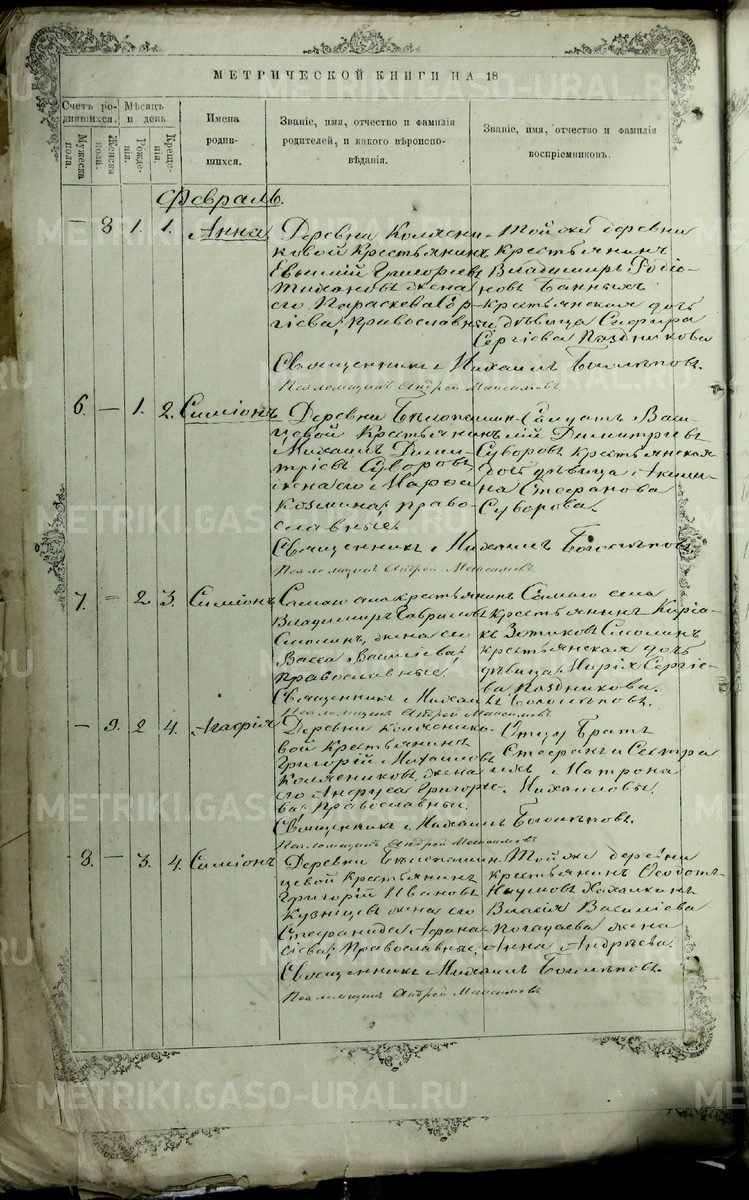 МЕТРИЧЕСКОЙ КНИГИ НА 18
Счетъ родившихся.
Мужеска пола.
Женска пола.
Мѣсяцъ и день
Рожденія.
Крещенія.
Имена родившихся.
Званіе, имя, отчество и фамилія родителей, и какого вѣроисповѣданія.
Званіе, имя, отчество и фамилія воспріемниковъ.
Февраль.
— 8 1. 1. Анна
Деревни Коляснико
ковой Крестьянинъ
Евѳимій Григорьевъ
Тихоновъ жена
его Параскева Геор-
гіева, православные
Той же деревни
Крестьянинъ
Владимиръ Родіо-
новъ Банныхъ
Крестьянская дочь
дѣвица Сафира
Сергіева Паздникова
Священникъ Михаилъ
Псаломщикъ Андрей Максимовъ
6. — 1. 2. Симіонъ
Деревни
цевой Крестьянинъ
Михаилъ Дими-
тріевъ Суворовъ,
жена его Марѳа
Козмина; право-
славные.
Солдатъ Васи-
лій Димитріевъ
Суворовъ Крестьянская
дочь дѣвица Акили-
на Стефанова
Суворова.
Священникъ Михаилъ
Псаломщикъ Андрей Максимовъ
7. — 2 3. Симіонъ
Самаго села крестьянинъ
Владимиръ Гавриловъ
Смолинъ, жена его
Васса Василіева;
Православные.
Самаго села
Крестьянинъ Киріа-
къ Зотиковъ Смолинъ,
крестьянская дочь
дѣвица Марія Сергіе-
ва Паздникова.
Священникъ Михаилъ
Псаломщикъ Андрей Максимовъ
— 9. 2 4. Агафія
Деревни Колеснико-
вой Крестьянинъ
Григорій Михаиловъ
Колясниковъ, жена
его Григорье-
ва; Православные.
Отцу Братъ
Стефанъ и Сестра
ихъ Матрона
Михаиловы.
Священникъ Михаилъ
Псаломщикъ Андрей Максимовъ
8. — 3. 4. Симіонъ
Деревни
цевой Крестьянинъ
Григорій Ивановъ
Кузнецовъ жена его
Стефанида Афана-
сіева; Православные,
Той же деревни
крестьянинъ Ѳеодотъ
Наумовъ
Власія Василіева
жена
Анна Андреева.
Священникъ Михаилъ
Псаломщикъ Андрей Максимовъ
METRIKI.GASO-URAL.RU